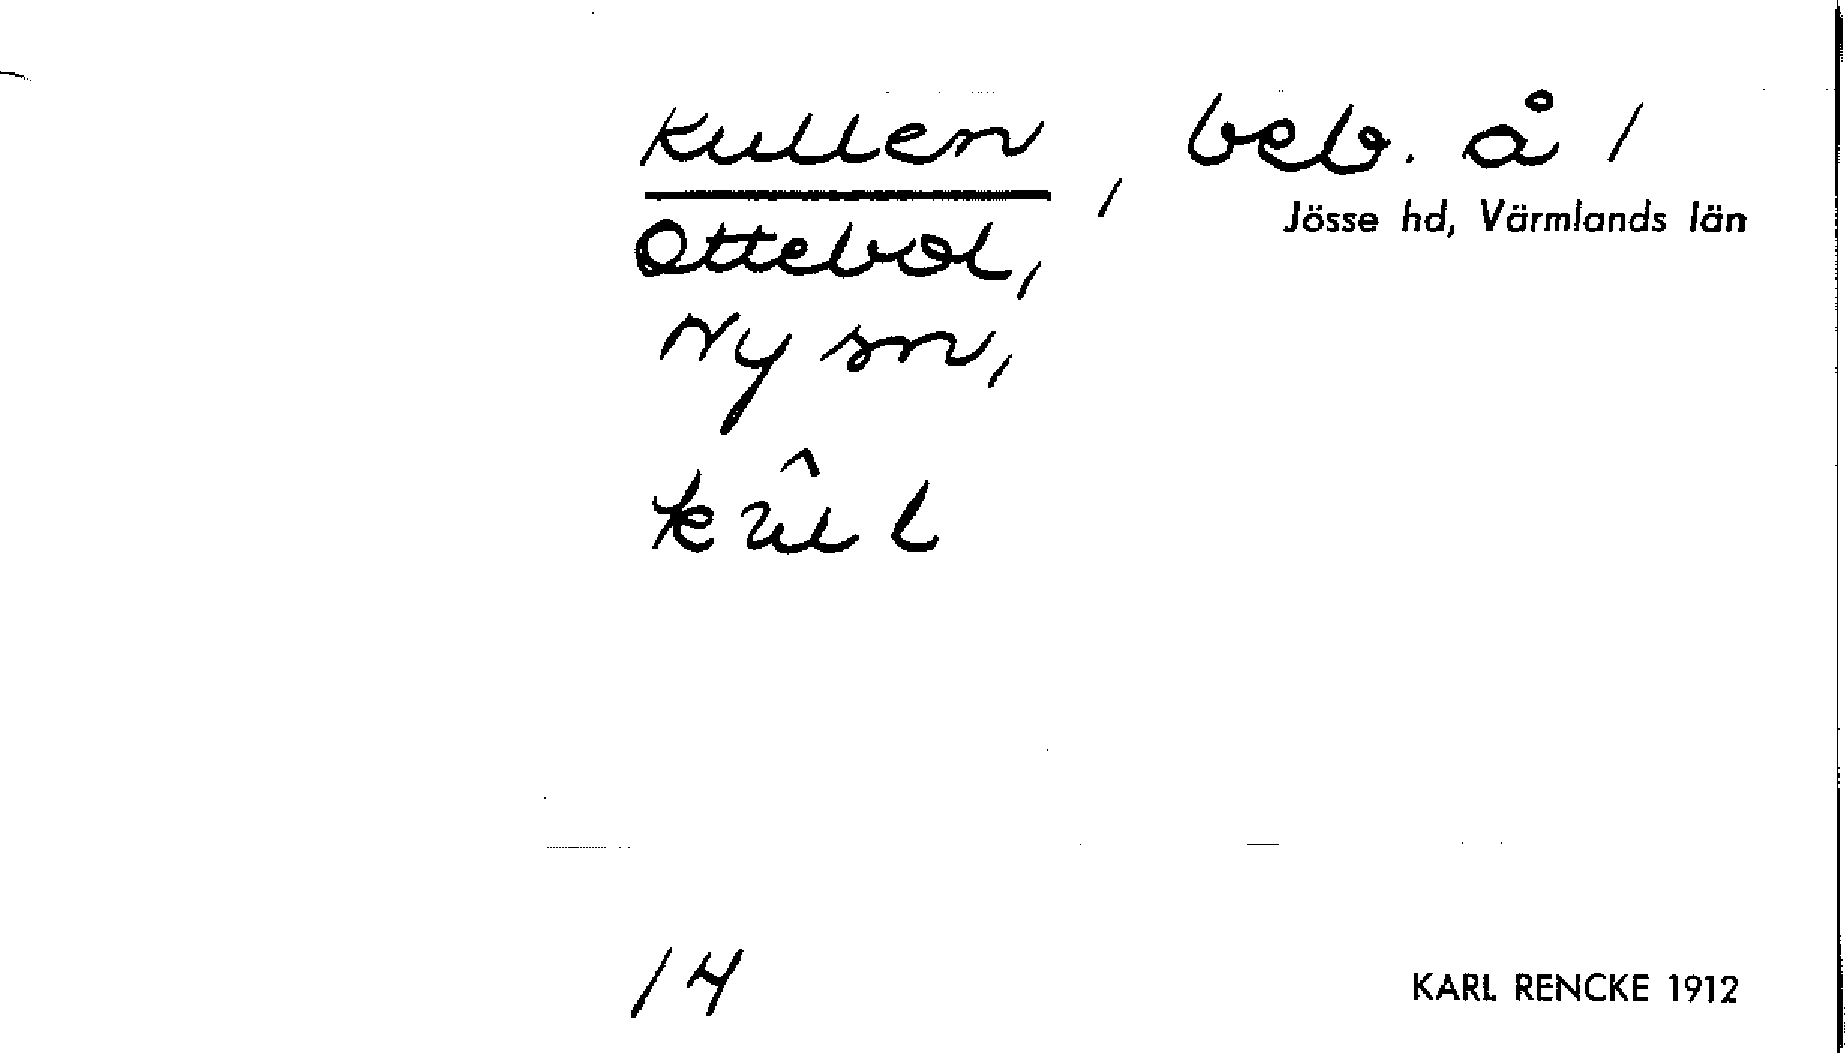 Kullen, beb. å 1
Jösse hd, Värmlands län
Ottebol,
Ny sn,
kûl
14
KARL RENCKE 1912